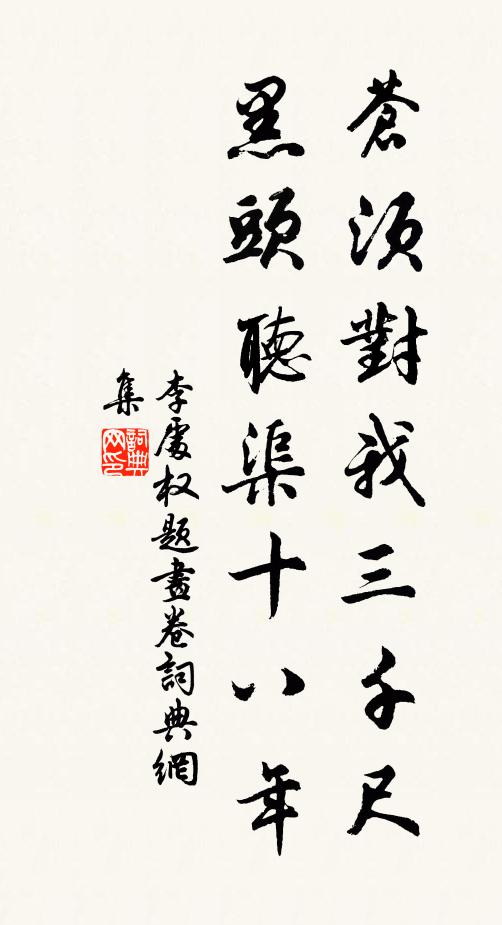 蒼須對我三千尺
黑頭聽渠十八年
李處权題畫卷詞典網
集
詞典
网印